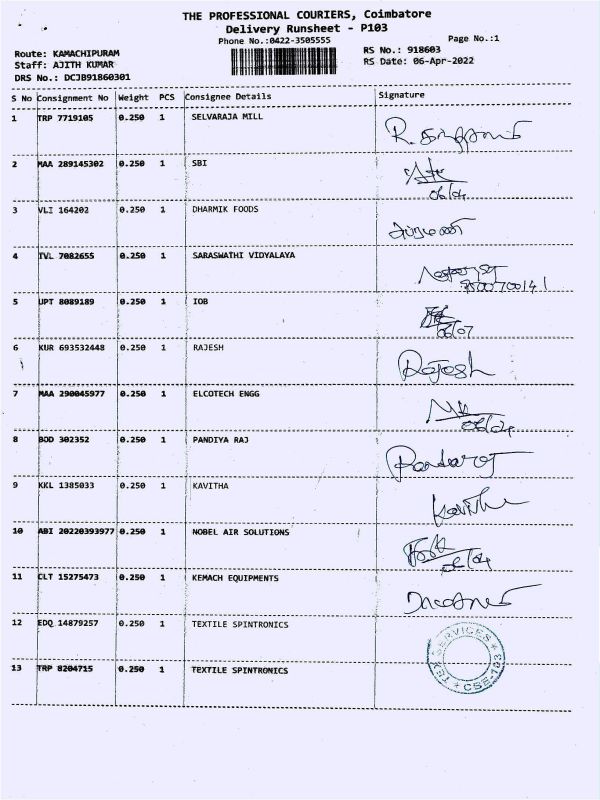 THE PROFESSIONAL COURIERS, Coimbatore
Delivery Runsheet - P103
Phone No.:0422-3505555
Page No.:1
Route: KAMACHIPURAM
RS No.: 918603
Staff: AJITH KUMAR
RS Date: 06-Apr-2022
DRS No.: DCJB91860301
S No Consignment No Weight PCS Consignee Details Signature
1 TRP 7719105 0.250 1 SELVARAJA MILL
2 MAA 289145302 0.250 1 SBI
06/04
3 VLI 164202 0.250 1 DHARMIK FOODS
4 TVL 7082655 0.250 1 SARASWATHI VIDYALAYA
5 UPT 8089189 0.250 1 IOB
06/07
6 KUR 693532448 0.250 1 RAJESH Rajesh
7 MAA 290045977 0.250 1 ELCOTECH ENGG
06/04
8 BOD 302352 0.250 1 PANDIYA RAJ
9 KKL 1385033 0.250 1 KAVITHA Kavitha
10 ABI 20220393977 0.250 1 NOBEL AIR SOLUTIONS
06/04
11 CLT 15275473 0.250 1 KEMACH EQUIPMENTS
12 EDQ 14879257 0.250 1 TEXTILE SPINTRONICS
TEX SERVICES * CBE-103 *
13 TRP 8204715 0.250 1 TEXTILE SPINTRONICS